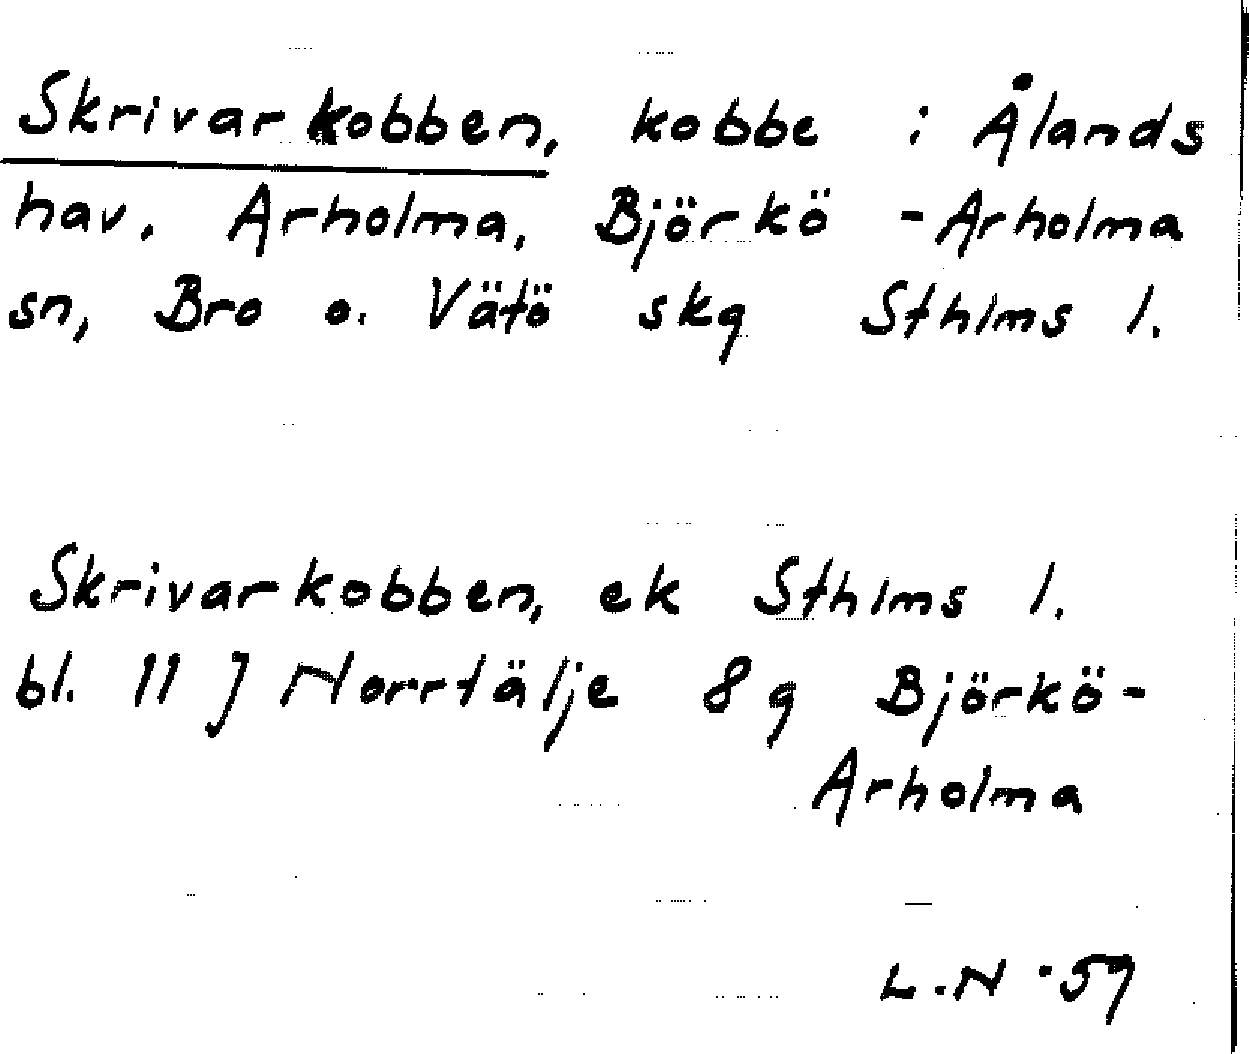 Skrivarkobben, kobbe i Ålands
hav. Arholma, Björkö-Arholma
sn, Bro o. Vätö skg Sthlms l.
Skrivarkobben, ek Sthlms l.
bl. 11 J Norrtälje 8 g Björkö-
Arholma
L.N -57